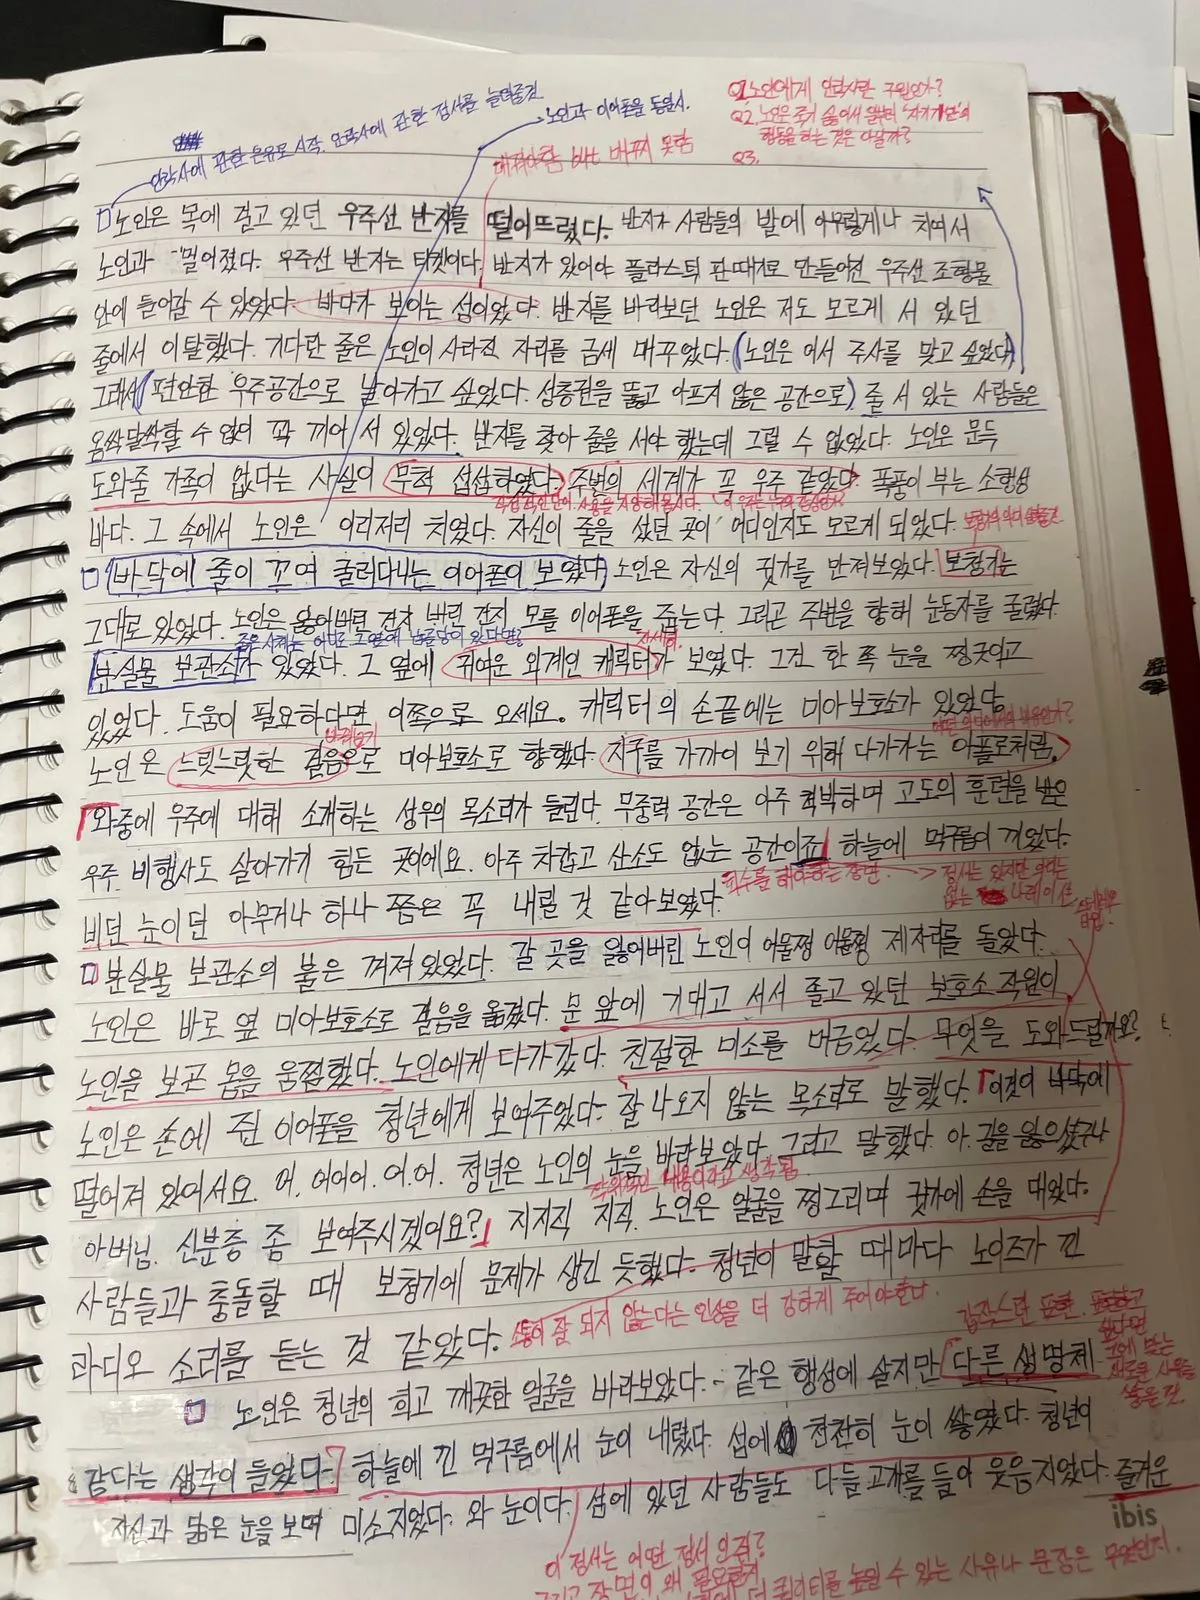 안락사에 관한 은유로 시작. 안락사에 관한 정서를 눌러줄것
노인과 이어폰을 동일시.
Q1. 노인에게 안락사란 구원인가?
Q2. 노인은 죽기 싫어서
행동을 하는 것은 아닐까?
Q3.
바뀌지 못함
노인은 목에 걸고 있던 우주선 반지를 떨어뜨렸다. 반지가 사람들의 발에 아무렇게나 치여서
노인과 멀어졌다. 우주선 반지는 티켓이다. 반지가 있어야 플라스틱 판때기로 만들어진 우주선 조형물
안에 들어갈 수 있었다. 바다가 보이는 섬이었다. 반지를 바라보던 노인은 저도 모르게 서 있던
줄에서 이탈했다. 기다란 줄은 노인이 사라진 자리를 금세 메꾸었다. (노인은 어서 주사를 맞고 싶었다)
그래서 (편안한 우주공간으로 날아가고 싶었다. 성층권을 뚫고 아프지 않은 공간으로) 줄 서 있는 사람들은
옴싹달싹할 수 없이 꽉 끼어 서 있었다. 반지를 찾아 줄을 서야 했는데 그럴 수 없었다. 노인은 문득
도와줄 가족이 없다는 사실이 무척 섭섭하였다. 주변의 세계가 꼭 우주 같았다. 폭풍이 부는 소행성
바다. 그 속에서 노인은 이리저리 치였다. 자신이 줄을 섰던 곳이 어디인지도 모르게 되었다.
바닥에 줄이 꼬여 굴러다니는 이어폰이 보였다. 노인은 자신의 귓가를 만져보았다. 보청기는
그대로 있었다. 노인은 잃어버린 건지 버린 건지 모를 이어폰을 줍는다. 그리고 주변을 향해 눈동자를 굴렸다.
분실물 보관소가 있었다. 그 옆에 귀여운 외계인 캐릭터가 보였다. 그건 한 쪽 눈을 찡긋이고
자세히.
있었다. 도움이 필요하다면 이쪽으로 오세요. 캐릭터의 손끝에는 미아보호소가 있었다.
노인은 느릿느릿한 걸음으로 미아보호소로 향했다. 지구를 가까이 보기 위해 다가가는 아폴로처럼.
와중에 우주에 대해 소개하는 성우의 목소리가 들린다. 무중력 공간은 아주 척박하며 고도의 훈련을 받은
우주 비행사도 살아가기 힘든 곳이에요. 아주 차갑고 산소도 없는 공간이죠. 하늘에 먹구름이 끼었다.
비던 눈이던 아무거나 하나 쯤은 꼭 내릴 것 같아보였다.
분실물 보관소의 불은 꺼져 있었다. 갈 곳을 잃어버린 노인이 어물쩡 어물쩡 제자리를 돌았다.
노인은 바로 옆 미아보호소로 걸음을 옮겼다. 문 앞에 기대고 서서 졸고 있던 보호소 직원이
노인을 보곤 몸을 움찔했다. 노인에게 다가갔다. 친절한 미소를 머금었다. 무엇을 도와드릴까요?
노인은 손에 쥔 이어폰을 청년에게 보여주었다. 잘 나오지 않는 목소리로 말했다. 이것이 바닥에
떨어져 있어서요. 어. 어어어. 어. 어. 청년은 노인의 눈을 바라보았다. 그리고 말했다. 아. 길을 잃으셨구나
작위적인 내용이라고 생각됨
아버님. 신분증 좀 보여주시겠어요? 지지직 지직. 노인은 얼굴을 찡그리며 귓가에 손을 대었다.
사람들과 충돌할 때 보청기에 문제가 생긴 듯했다. 청년이 말할 때마다 노이즈가 낀
라디오 소리를 듣는 것 같았다.
소통이 잘 되지 않는다는 인상을 더 강하게 주어야 한다.
갑작스런 표현.
노인은 청년의 희고 깨끗한 얼굴을 바라보았다. 같은 행성에 살지만 다른 생명체
같다는 생각이 들었다. 하늘에 낀 먹구름에서 눈이 내렸다. 섬에 천천히 눈이 쌓였다. 청년이
자신과 닮은 눈을 보며 미소지었다. 와 눈이다. 섬에 있던 사람들도 다들 고개를 들어 웃음지었다. 즐거운
ibis
이 정서는 어떤 정서인걸까?
그리고 장면이 왜 필요한가
더 퀄리티를 높일 수 있는 사유나 문장은 무엇인지.